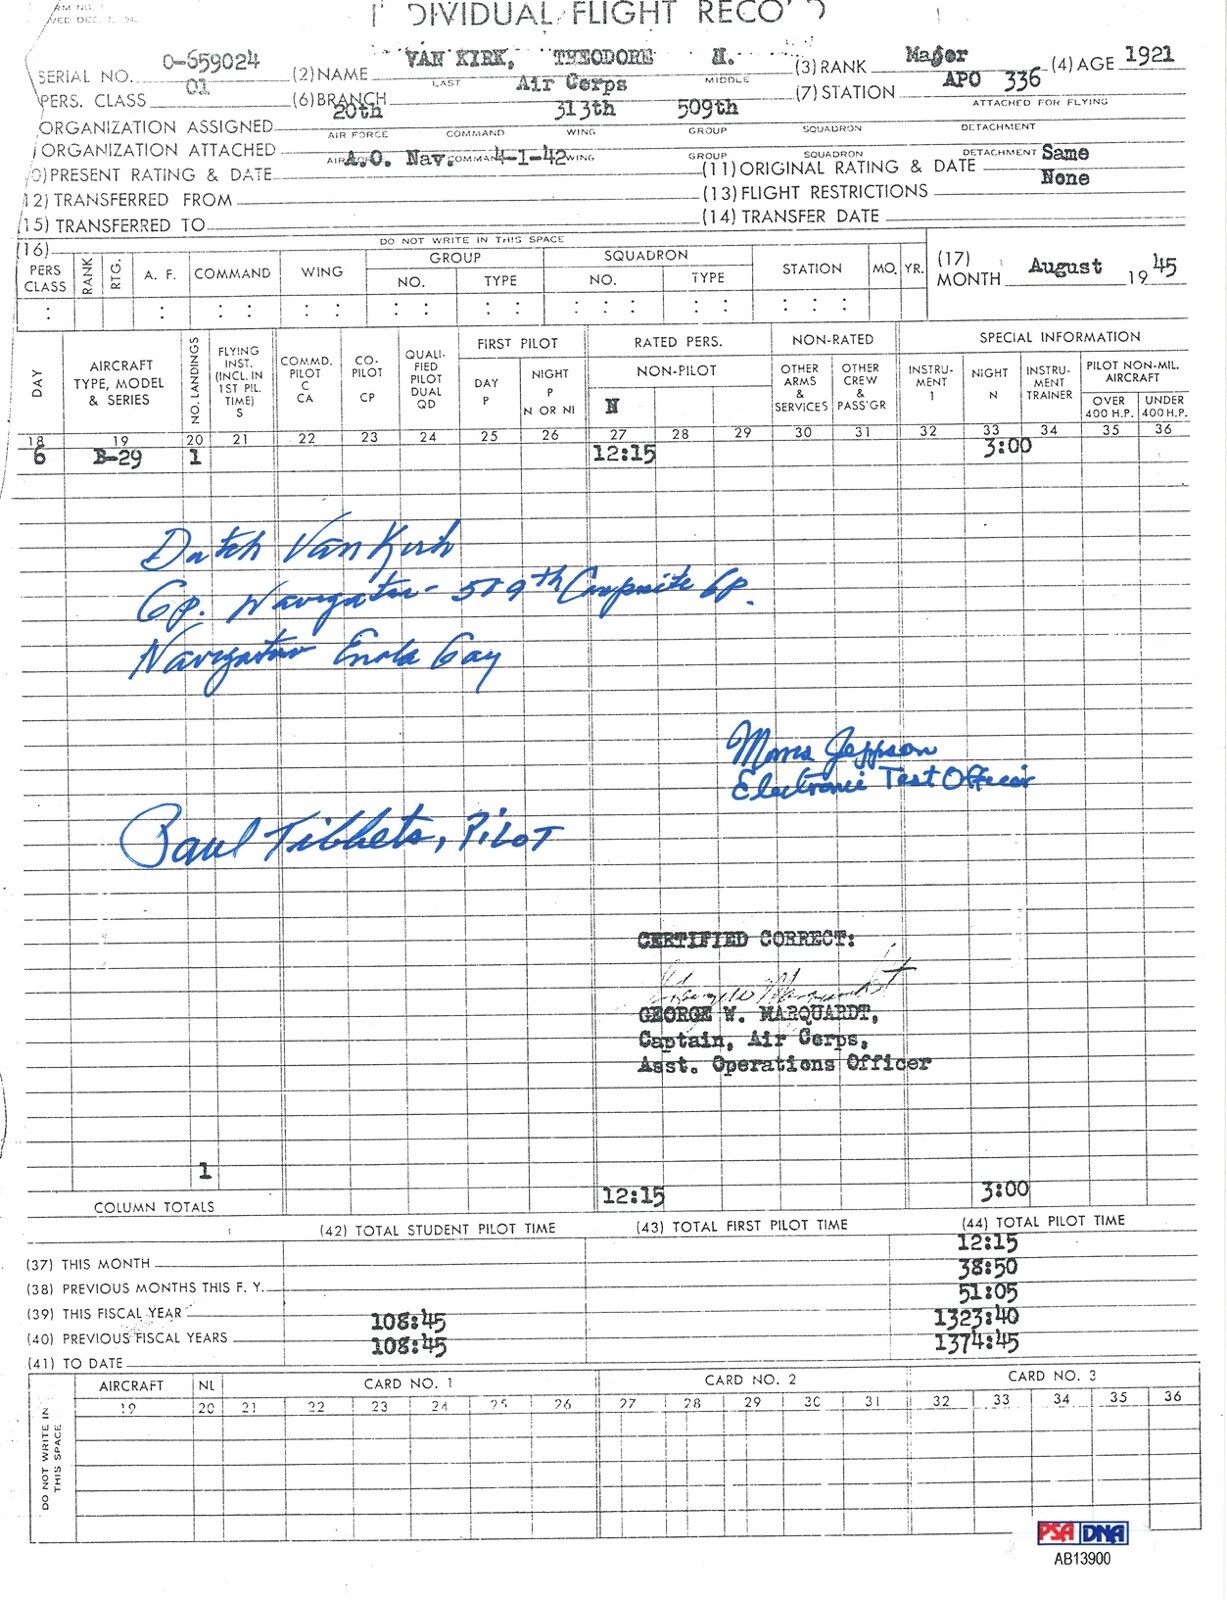 DIVIDUAL FLIGHT RECO
SERIAL NO. O-659024 (2) NAME VAN KIRK, THEODORE (3) RANK Major (4) AGE 1921
LAST MIDDLE
PERS. CLASS 01 (6) BRANCH Air Corps (7) STATION APO 336
ATTACHED FOR FLYING
ORGANIZATION ASSIGNED 20th 313th 509th
AIR FORCE COMMAND WING GROUP SQUADRON DETACHMENT
ORGANIZATION ATTACHED
COMMAND WING GROUP SQUADRON DETACHMENT
0) PRESENT RATING & DATE A.O. Nav. 4-1-42 (11) ORIGINAL RATING & DATE Same
12) TRANSFERRED FROM (13) FLIGHT RESTRICTIONS None
(15) TRANSFERRED TO (14) TRANSFER DATE
(16) DO NOT WRITE IN THIS SPACE
PERS CLASS RANK RTG. A. F. COMMAND WING GROUP NO. TYPE SQUADRON NO. TYPE STATION MO. YR. (17) MONTH August 1945
DAY AIRCRAFT TYPE, MODEL & SERIES NO. LANDINGS FLYING INST. (INCL. IN 1ST PIL. TIME) S COMMD. PILOT C CA CO-PILOT CP QUALI-FIED PILOT DUAL QD FIRST PILOT DAY P NIGHT P N OR NI RATED PERS. NON-PILOT N NON-RATED OTHER ARMS & SERVICES OTHER CREW & PASS'GR SPECIAL INFORMATION INSTRU-MENT I NIGHT N INSTRU-MENT TRAINER PILOT NON-MIL. AIRCRAFT OVER 400 H.P. UNDER 400 H.P.
18 19 20 21 22 23 24 25 26 27 28 29 30 31 32 33 34 35 36
6 B-29 1 12:15 3:00
Dutch VanKirk
Gp. Navigator - 509th Composite Gp.
Navigator Enola Gay
Morris Jeppson
Electronic Test Officer
Paul Tibbets, PILOT
CERTIFIED CORRECT:
GEORGE W. MARQUARDT,
Captain, Air Corps,
Asst. Operations Officer
1
COLUMN TOTALS 12:15 3:00
(42) TOTAL STUDENT PILOT TIME (43) TOTAL FIRST PILOT TIME (44) TOTAL PILOT TIME
(37) THIS MONTH 12:15
(38) PREVIOUS MONTHS THIS F. Y. 38:50
(39) THIS FISCAL YEAR 51:05
(40) PREVIOUS FISCAL YEARS 108:45 1323:40
(41) TO DATE 108:45 1374:45
DO NOT WRITE IN THIS SPACE
AIRCRAFT NL CARD NO. 1 CARD NO. 2 CARD NO. 3
19 20 21 22 23 24 25 26 27 28 29 30 31 32 33 34 35 36
PSA DNA
AB13900